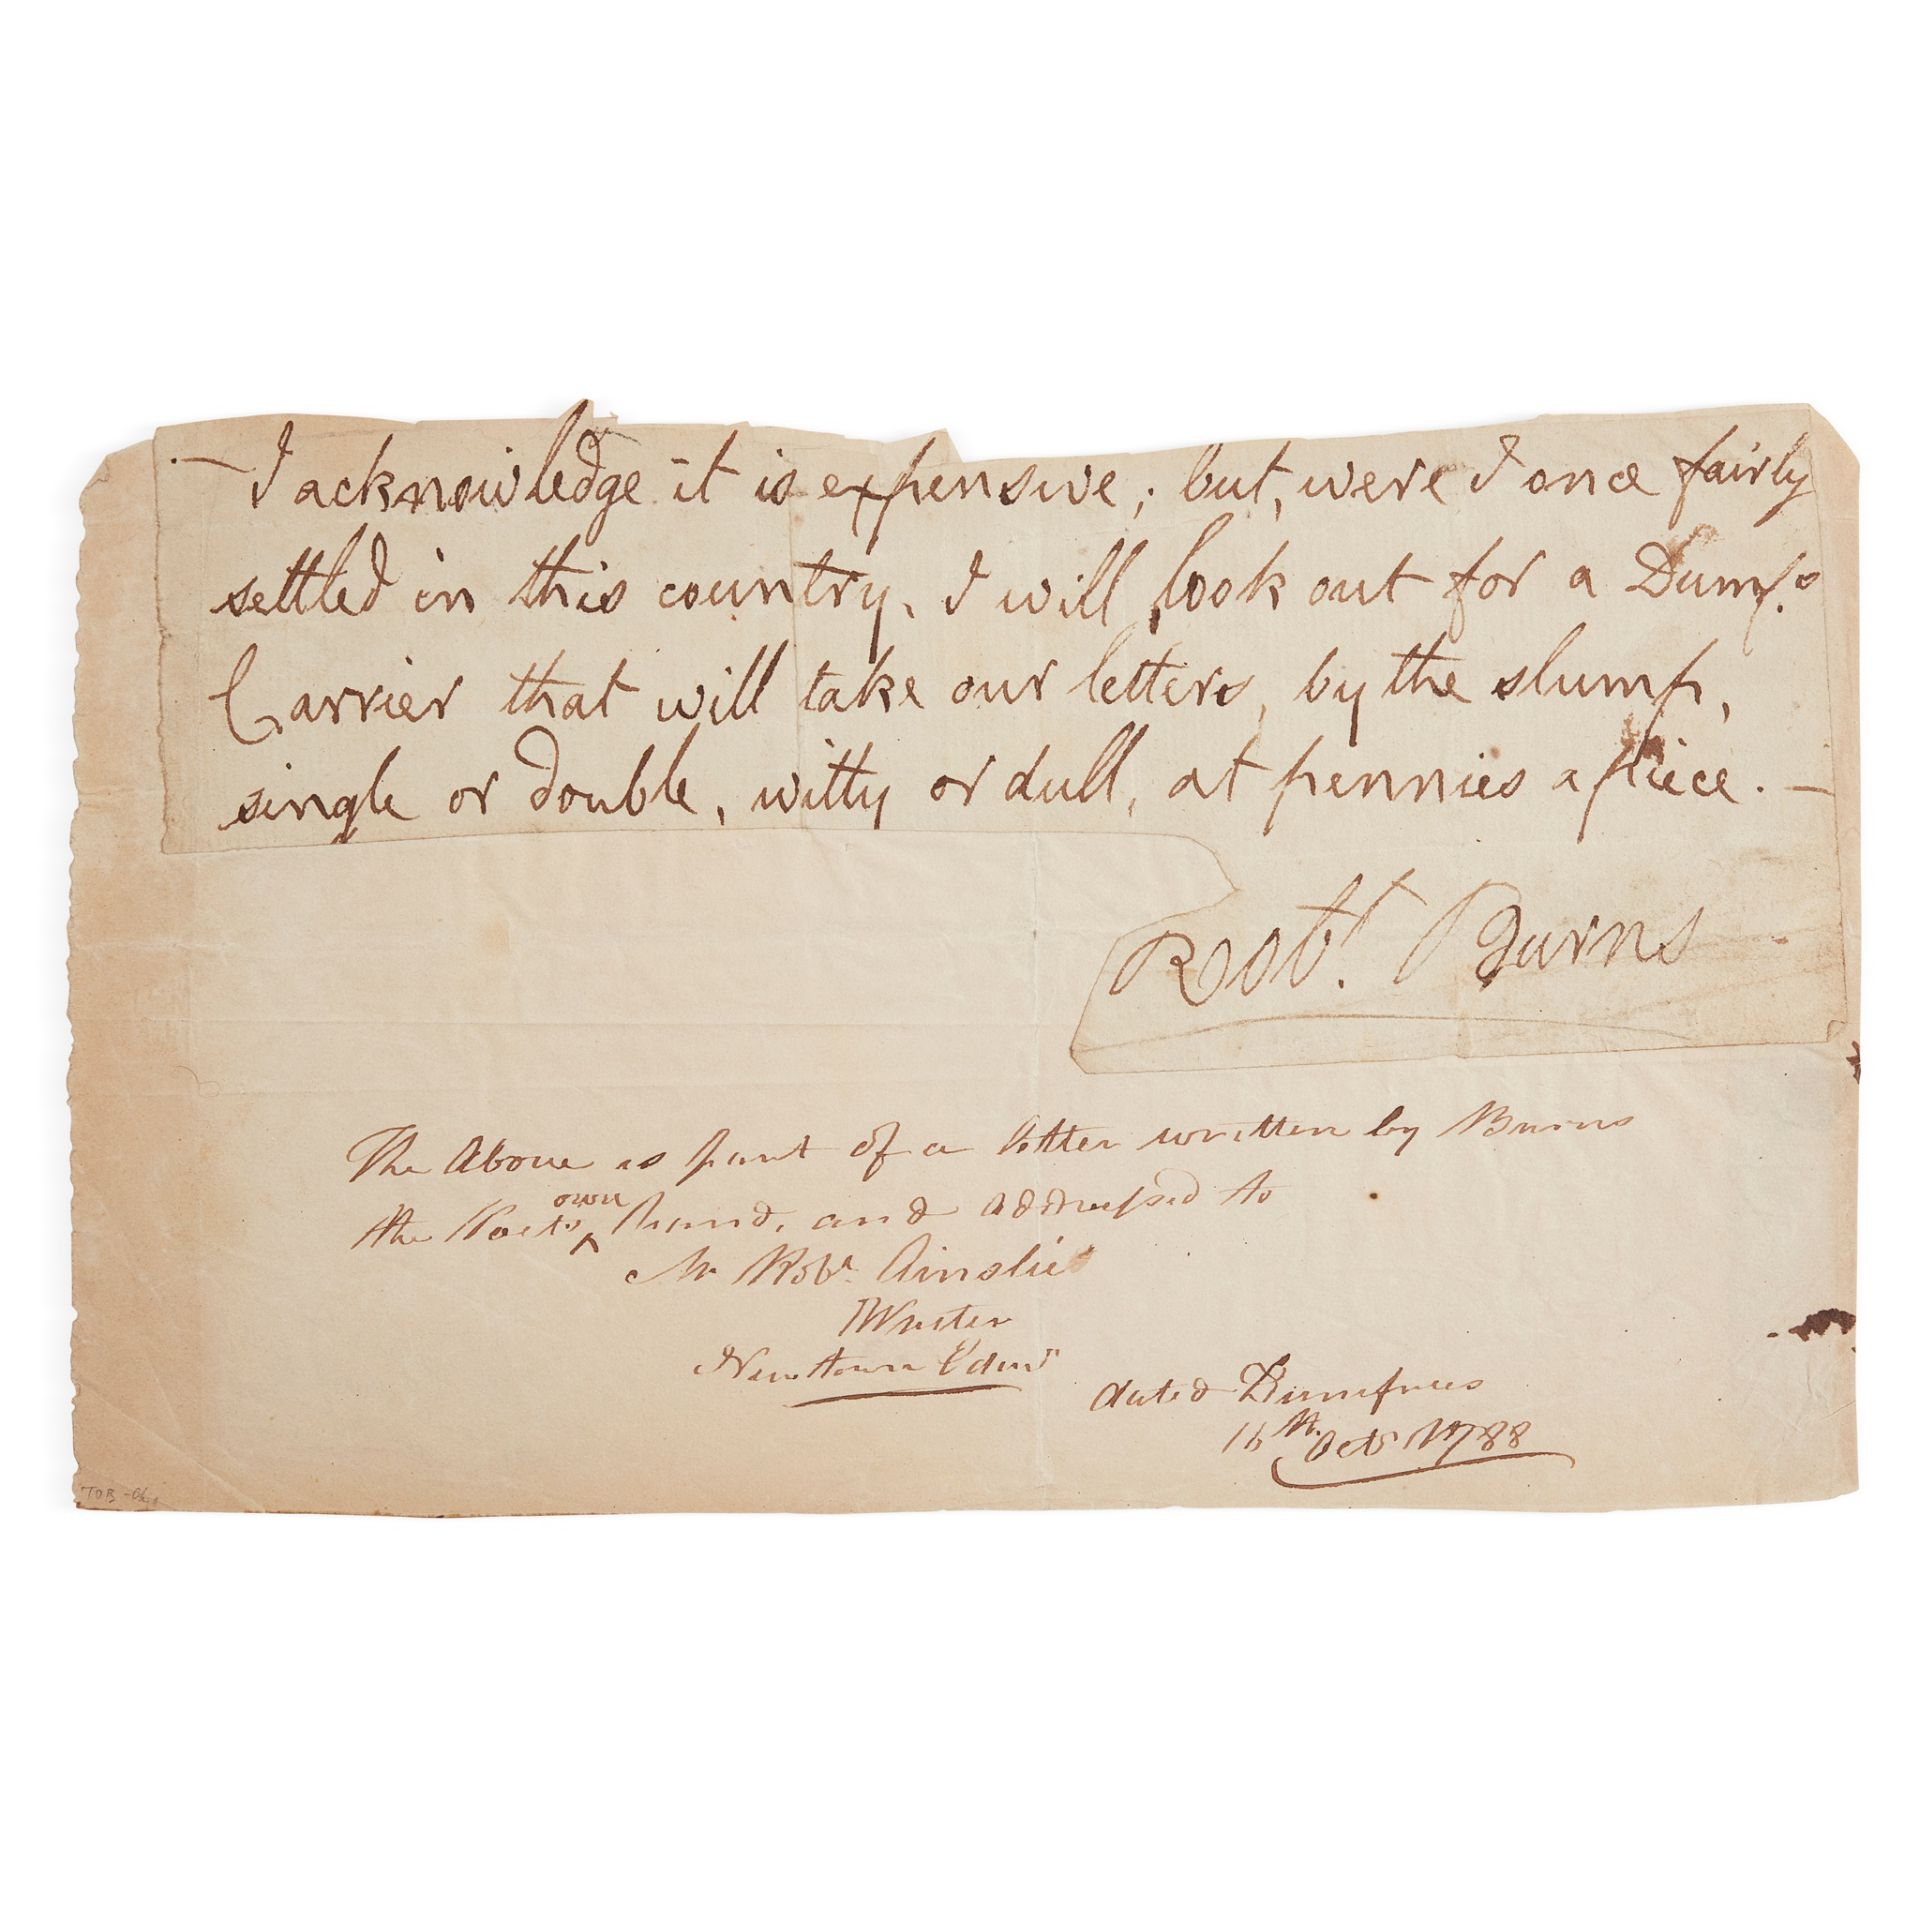 – I acknowledge it is expensive; but, were I once fairly
settled in this country, I will look out for a Dumf.s
Carrier that will take our letters, by the slump,
single or double, witty or dull, at pennies apiece. –
Robt. Burns
The Above is part of a letter written by Burns
the Poets own hand, and addressed to
Mr Robt. Ainslie
Writer
Newtown Edinr
dated Dumfries
16th. Octr 1788
TOB